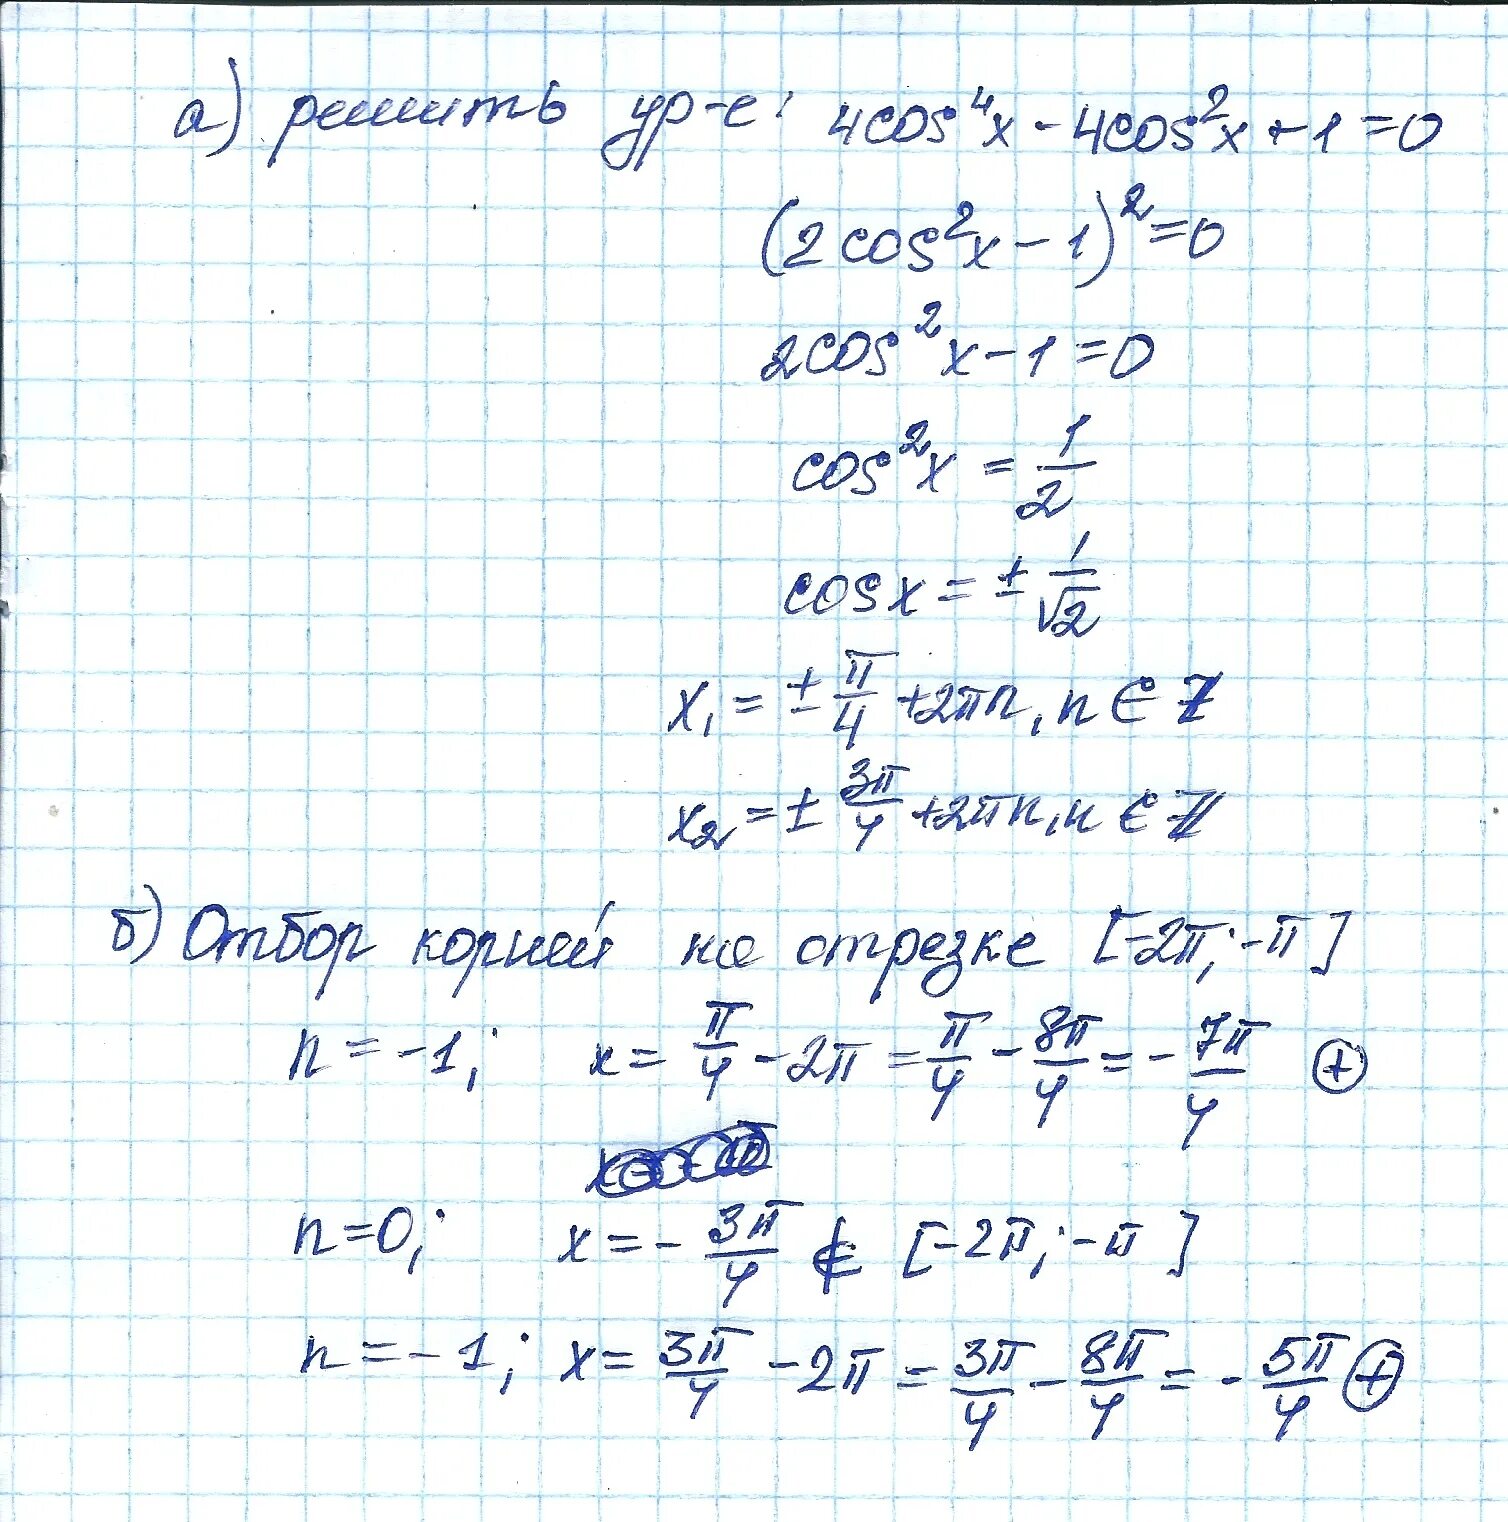 а) решить ур-е: 4cos⁴x - 4cos²x + 1 = 0
(2cos²x - 1)² = 0
2cos²x - 1 = 0
cos²x = 1/2
cos x = ± 1/√2
x₁ = ± π/4 + 2πn, n ∈ Z
x₂ = ± 3π/4 + 2πn, n ∈ Z
б) Отбор корней на отрезке [-2π; -π]
n = -1; x = π/4 - 2π = π/4 - 8π/4 = - 7π/4 ⊕
n = 0; x = - 3π/4 ∉ [-2π; -π]
n = -1; x = 3π/4 - 2π = 3π/4 - 8π/4 = - 5π/4 ⊕